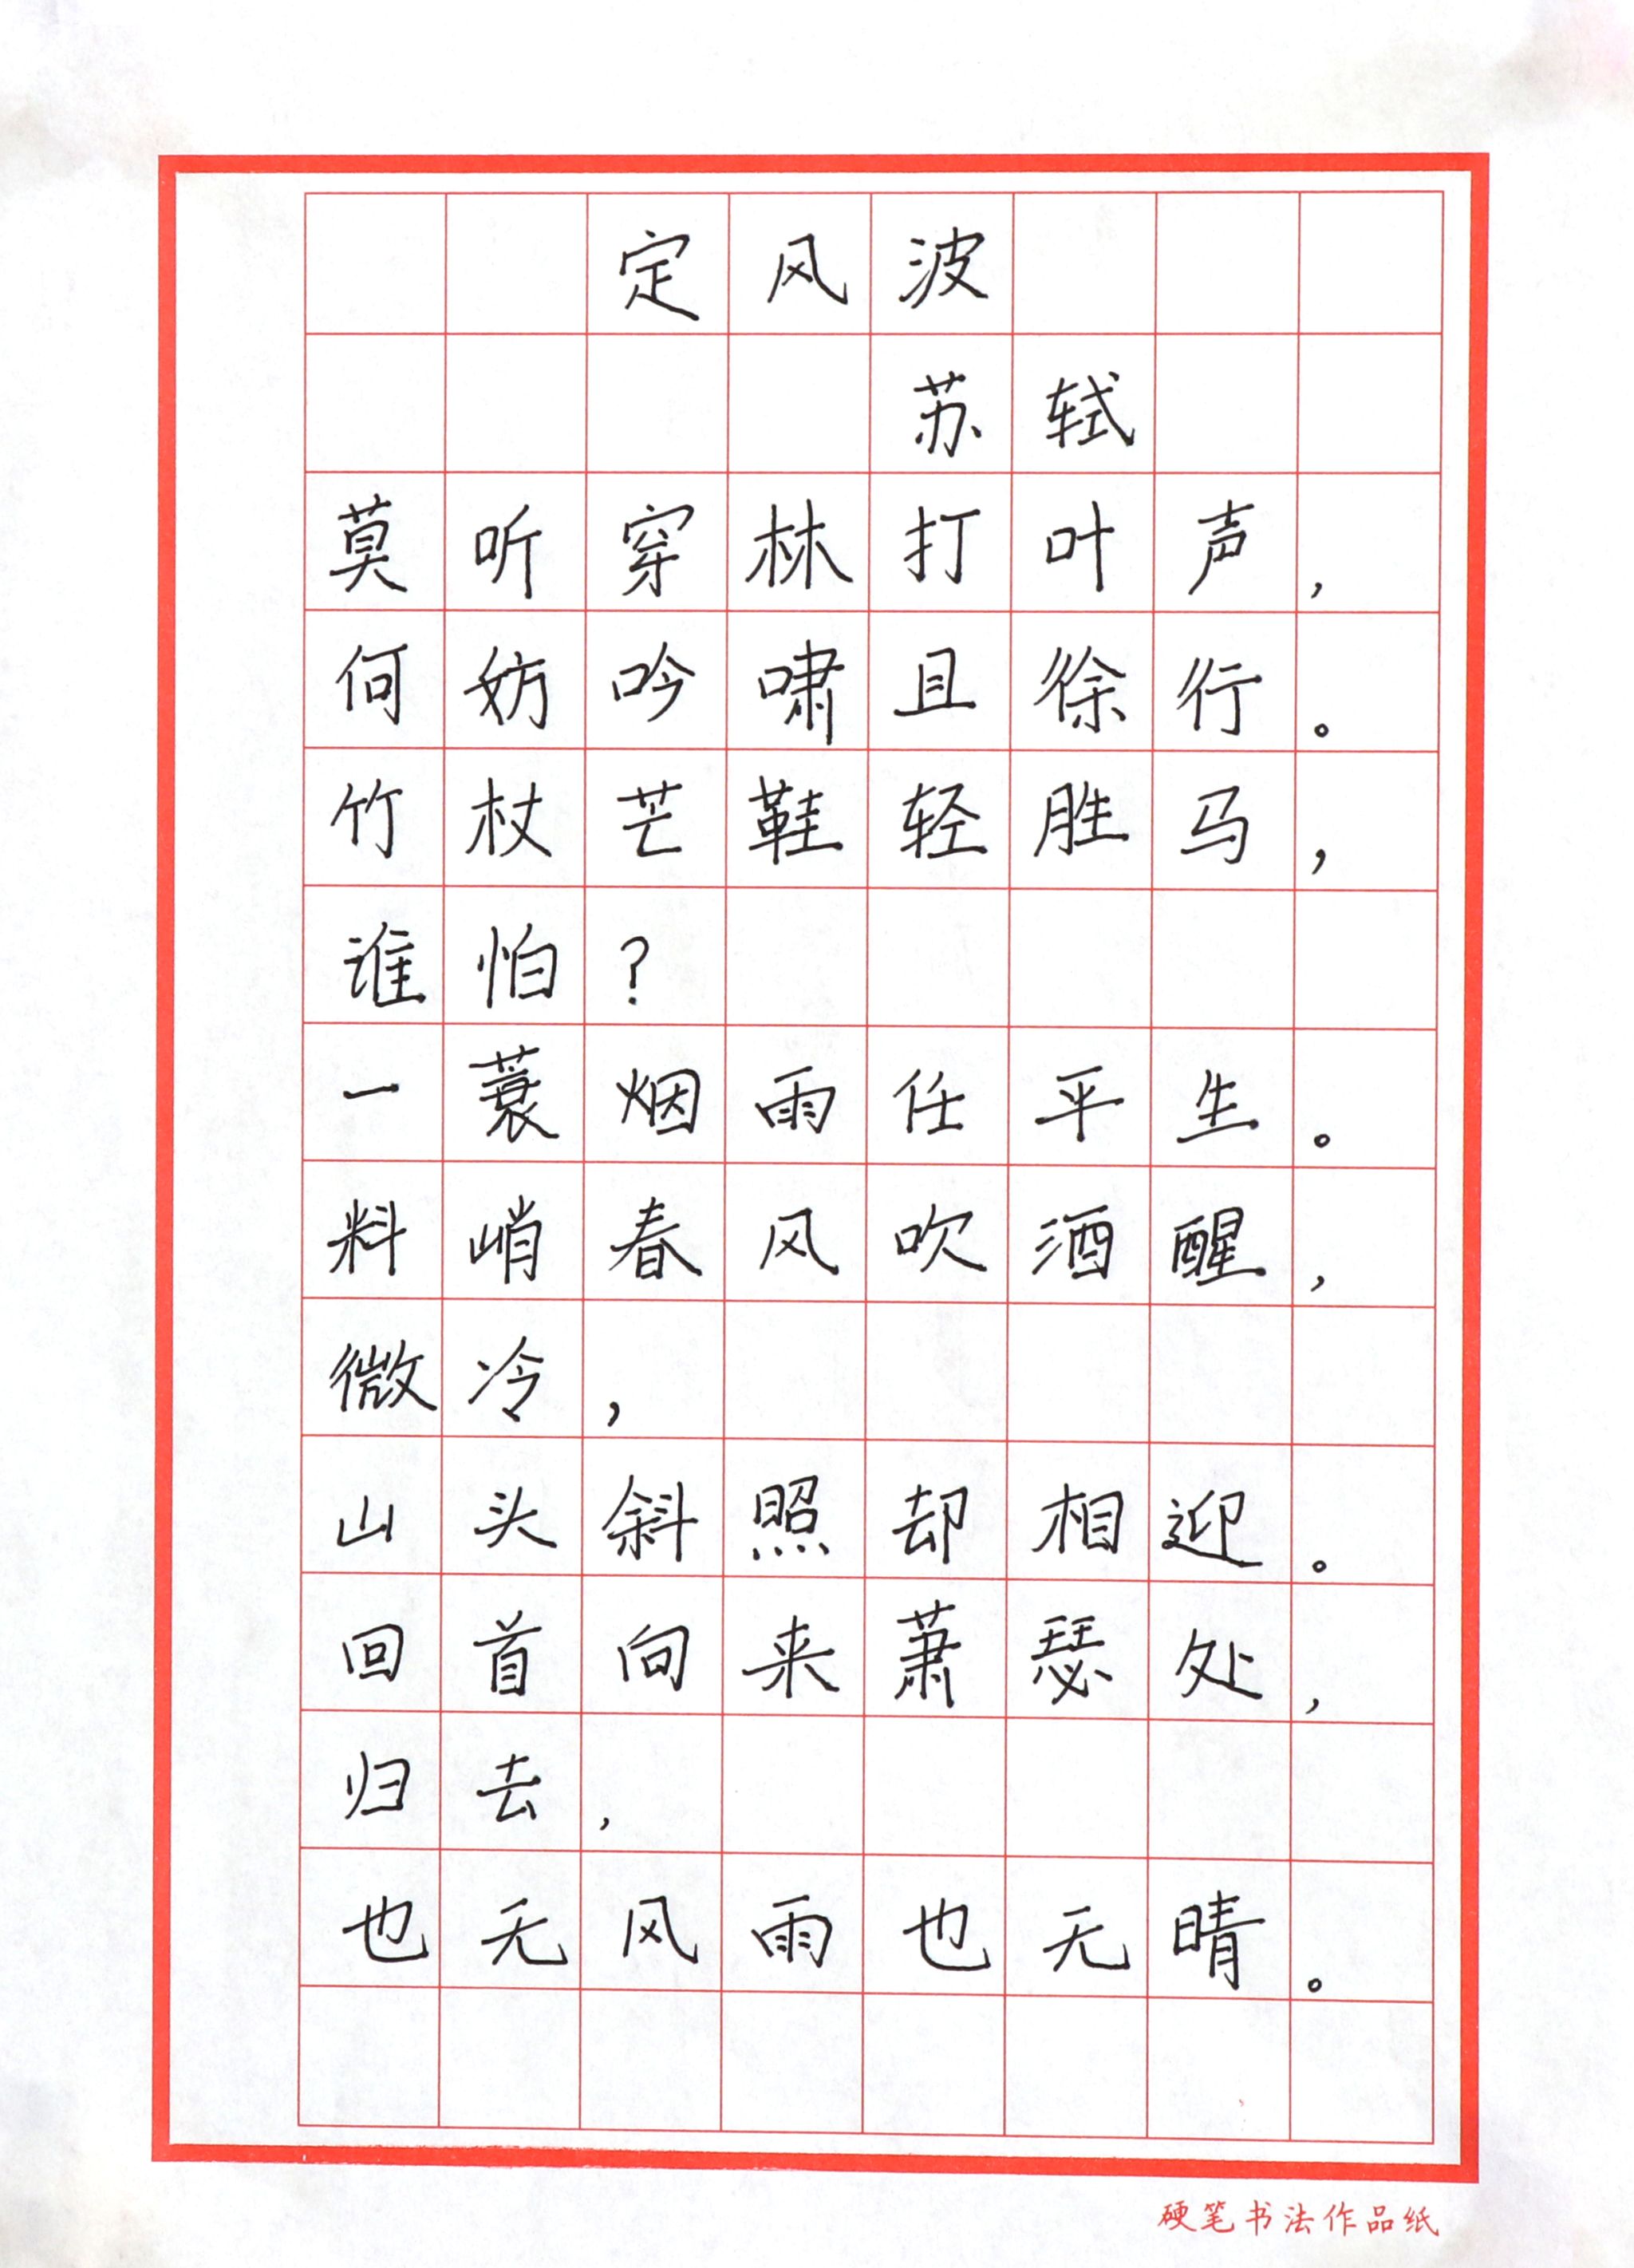 定风波
苏轼
莫听穿林打叶声，
何妨吟啸且徐行。
竹杖芒鞋轻胜马，
谁怕？
一蓑烟雨任平生。
料峭春风吹酒醒，
微冷，
山头斜照却相迎。
回首向来萧瑟处，
归去，
也无风雨也无晴。
硬笔书法作品纸